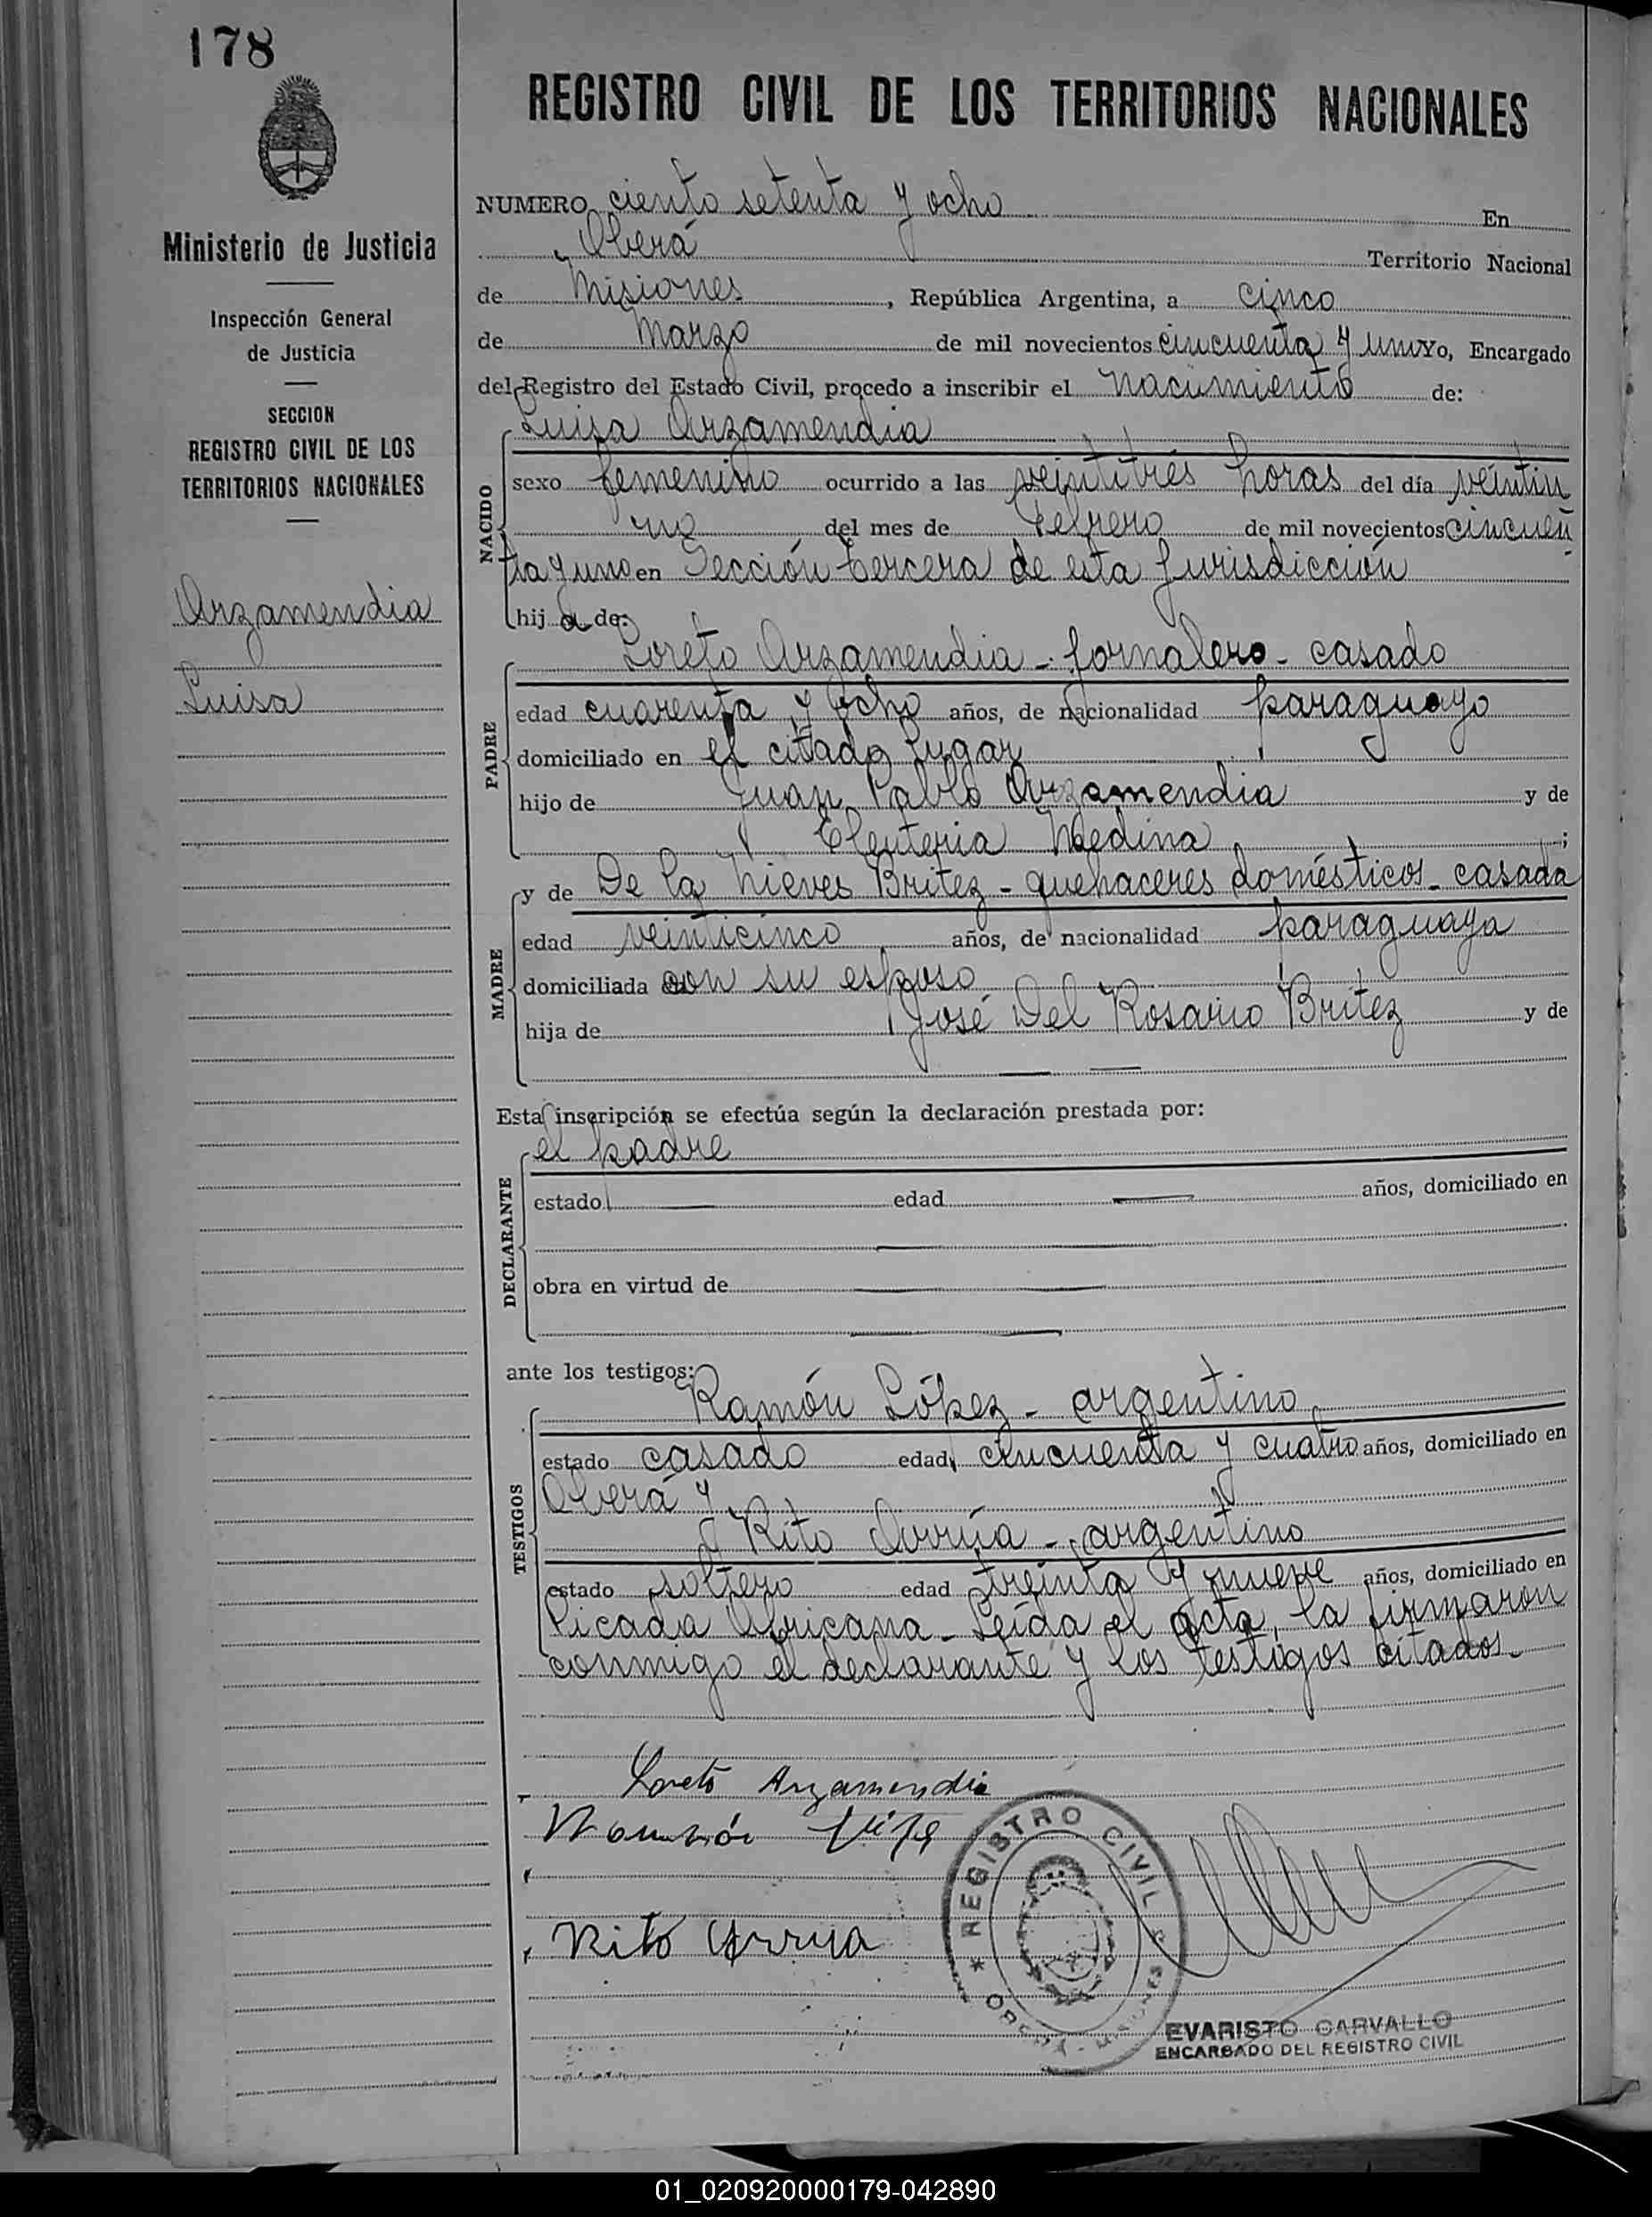 178
REGISTRO CIVIL DE LOS TERRITORIOS NACIONALES
Ministerio de Justicia
Inspección General
de Justicia
SECCION
REGISTRO CIVIL DE LOS
TERRITORIOS NACIONALES
Arzamendia
Luisa
NUMERO ciento setenta y ocho En
Oberá Territorio Nacional
de Misiones, República Argentina, a cinco
de Marzo de mil novecientos cincuenta y uno Yo, Encargado
del Registro del Estado Civil, procedo a inscribir el nacimiento de:
Luisa Arzamendia
NACIDO
sexo femenino ocurrido a las veintitrés horas del día veintiu
no del mes de Febrero de mil novecientos cincuen
ta y uno en Sección tercera de esta jurisdicción
hij a de:
Loreto Arzamendia - jornalero - casado
PADRE
edad cuarenta y ocho años, de nacionalidad paraguayo
domiciliado en el citado lugar
hijo de Juan Pablo Arzamendia y de
Eleuteria Medina ;
y de De la Nieves Britez - quehaceres domésticos - casada
MADRE
edad veinticinco años, de nacionalidad paraguaya
domiciliada con su esposo
hija de José Del Rosario Britez y de
Esta inscripción se efectúa según la declaración prestada por:
el padre
DECLARANTE
estado edad años, domiciliado en
obra en virtud de
ante los testigos:
Ramón López - argentino
TESTIGOS
estado casado edad cincuenta y cuatro años, domiciliado en
Oberá y
Rito Arrúa - argentino
estado soltero edad treinta y nueve años, domiciliado en
Picada Africana - Leída el acta, la firmaron
conmigo el declarante y los testigos citados.
Loreto Arzamendia
Rito Arrua
REGISTRO CIVIL
OBERA - MISIONES
EVARISTO CARVALLO
ENCARGADO DEL REGISTRO CIVIL
01_020920000179-042890